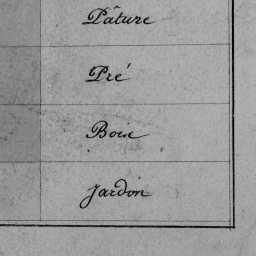 Pâture
Pré
Bois
Jardin